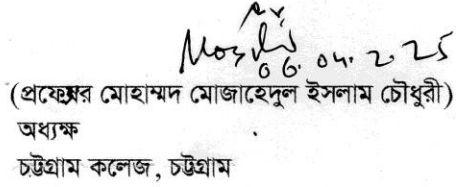 06.04.2025
(প্রফেসর মোহাম্মদ মোজাহেদুল ইসলাম চৌধুরী)
অধ্যক্ষ
চট্টগ্রাম কলেজ, চট্টগ্রাম